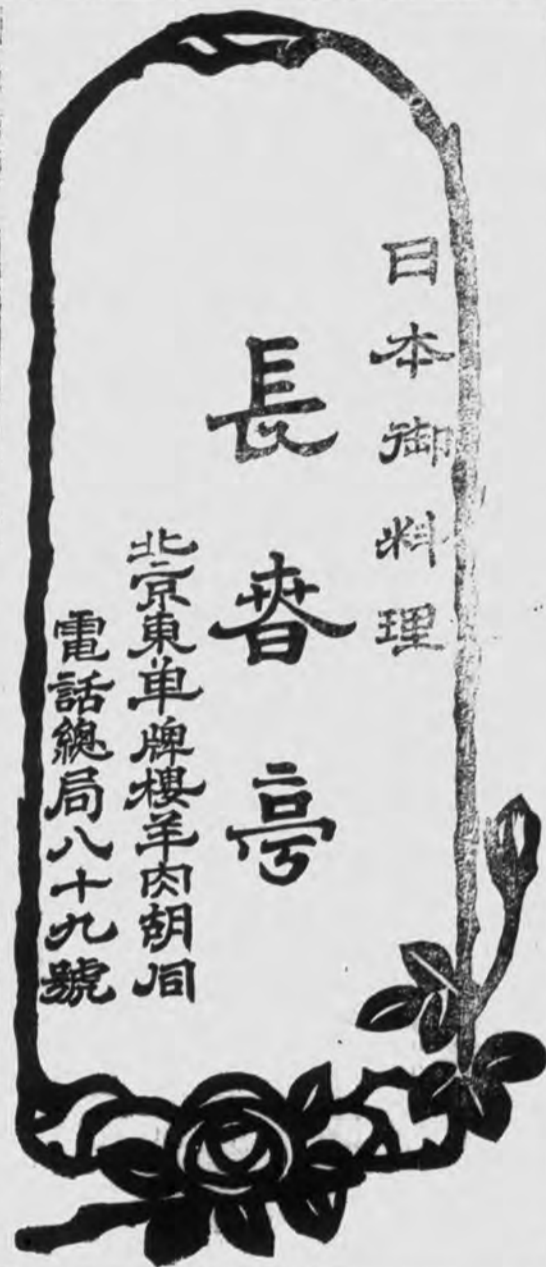 日本御料理
長春亭
北京東単牌楼羊肉胡同
電話總局八十九號